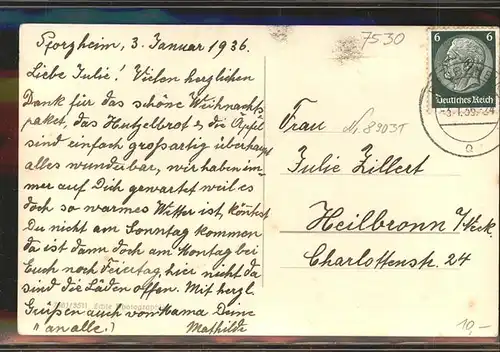 Pforzheim, 3. Januar 1936.
Liebe Julie! Vielen herzlichen
Dank für das schöne Weihnachts
paket, das Hutzelbrot & die Äpfel
sind einfach großartig überhaupt
alles wunderbar, wir haben im-
mer auf Dich gewartet weil es
doch so warmes Wetter ist, könntest
Du nicht am Sonntag kommen
da ist dann doch am Montag bei
Euch noch Feiertag, hier nicht da
sind die Läden offen. Mit herzl.
Grüßen auch von Mama Deine
(an alle.) Mathilde
7530
6 6
Deutsches Reich
Frau
Julie Zillert
Heilbronn a/Neck
Charlottenstr. 24
10,-